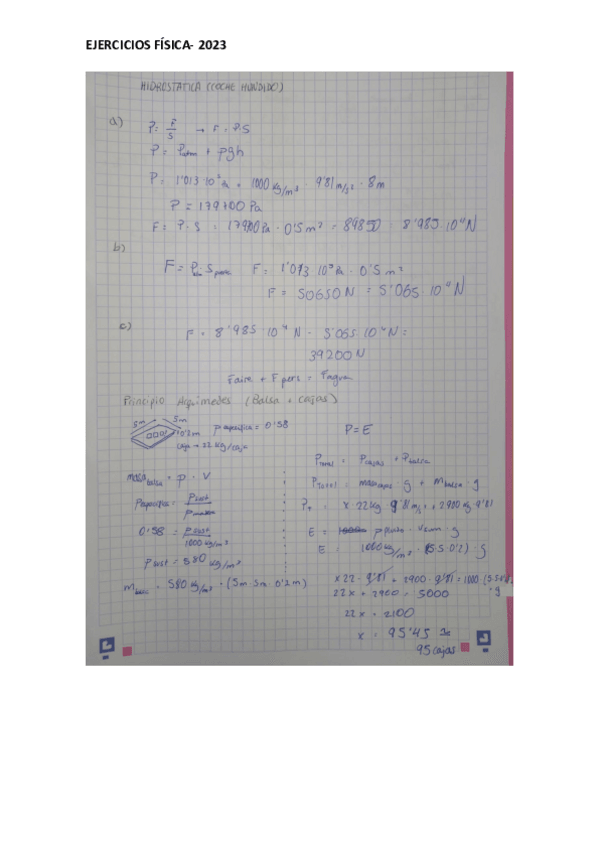 EJERCICIOS FÍSICA- 2023
HIDROSTATICA (COCHE HUNDIDO)
a)
P = F/S → F = P·S
P = Patm + ρgh
P = 1'013·10⁵ Pa + 1000 kg/m³ · 9'81 m/s² · 8m
P = 179700 Pa
F = P·S = 179700 Pa · 0'5 m² = 89850 = 8'985·10⁴ N
b)
F = · S F = 1'013·10⁵ Pa · 0'5 m²
F = 50650 N = 5'065·10⁴ N
c)
F = 8'985·10⁴ N - 5'065·10⁴ N =
39200 N
Faire + F pers = Fagua
Principio Arquimedes (Balsa + cajas)
5m 5m
0'2m
caja → 22 kg/caja
ρ especifica = 0'58
masa balsa = ρ · V
ρ especifica = ρ sust / ρ
0'58 = ρ sust / 1000 kg/m³
ρ sust = 580 kg/m³
m = 580 kg/m³ · (5m·5m·0'2m)
P=E
Ptotal = Pcajas + Pbalsa
PTotal = masa · g + mbalsa · g
PT = x·22kg · 9'81 m/s² + 2900 kg · 9'81
E = · Vsum · g
E = 1000 kg/m³ · (5·5·0'2) · g
x 22 · 9'81 + 2900 · 9'81 = 1000 · (5·5·0'2) · g
22x + 2900 = 5000
22x = 2100
x = 95'45
95 cajas